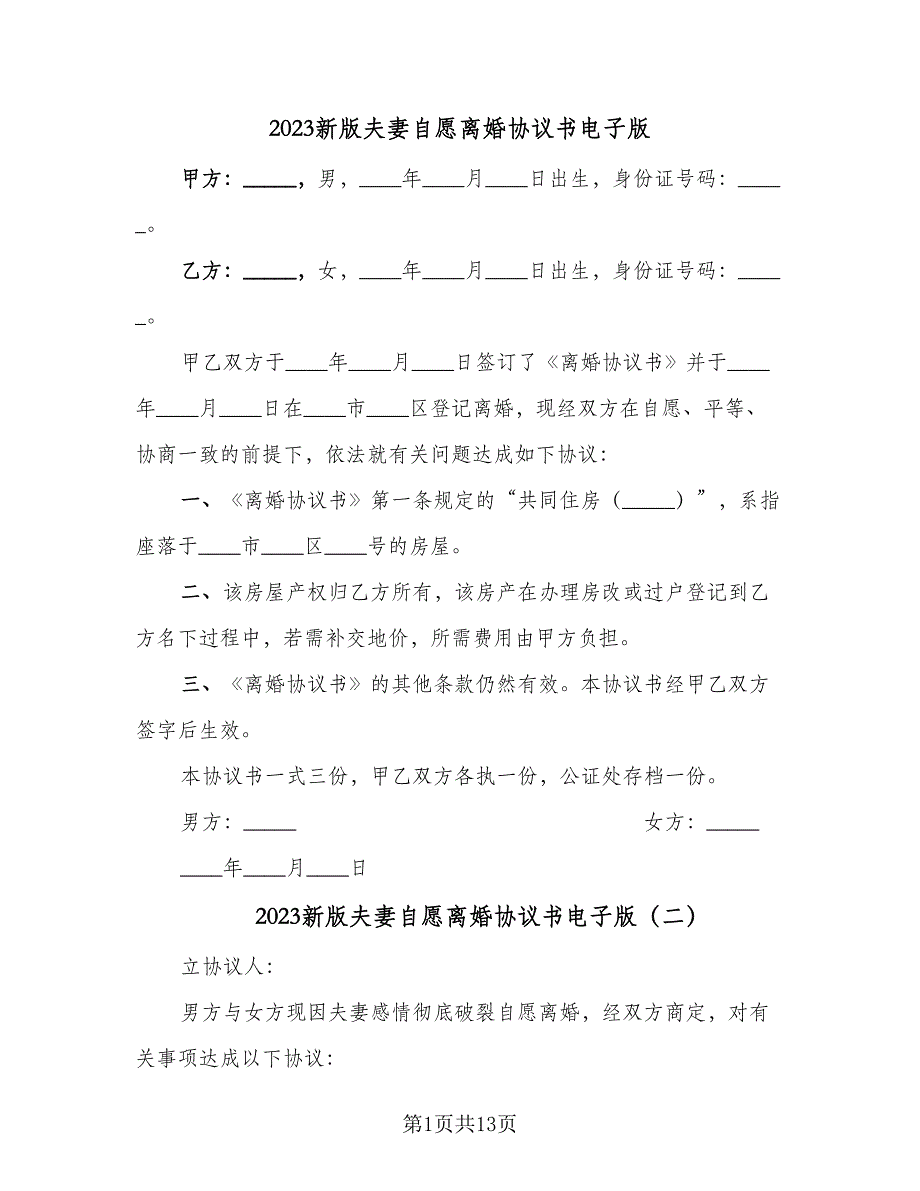 2023新版夫妻自愿离婚协议书电子版
甲方：_____，男，____年____月____日出生，身份证号码：____
_。
乙方：_____，女，____年____月____日出生，身份证号码：____
_。
甲乙双方于____年____月____日签订了《离婚协议书》并于____
年____月____日在____市____区登记离婚，现经双方在自愿、平等、
协商一致的前提下，依法就有关问题达成如下协议：
一、《离婚协议书》第一条规定的“共同住房（_____）”，系指
座落于____市____区____号的房屋。
二、该房屋产权归乙方所有，该房产在办理房改或过户登记到乙
方名下过程中，若需补交地价，所需费用由甲方负担。
三、《离婚协议书》的其他条款仍然有效。本协议书经甲乙双方
签字后生效。
本协议书一式三份，甲乙双方各执一份，公证处存档一份。
男方：_____ 女方：_____
____年____月____日
2023新版夫妻自愿离婚协议书电子版（二）
立协议人：
男方与女方现因夫妻感情彻底破裂自愿离婚，经双方商定，对有
关事项达成以下协议：
第1页共13页